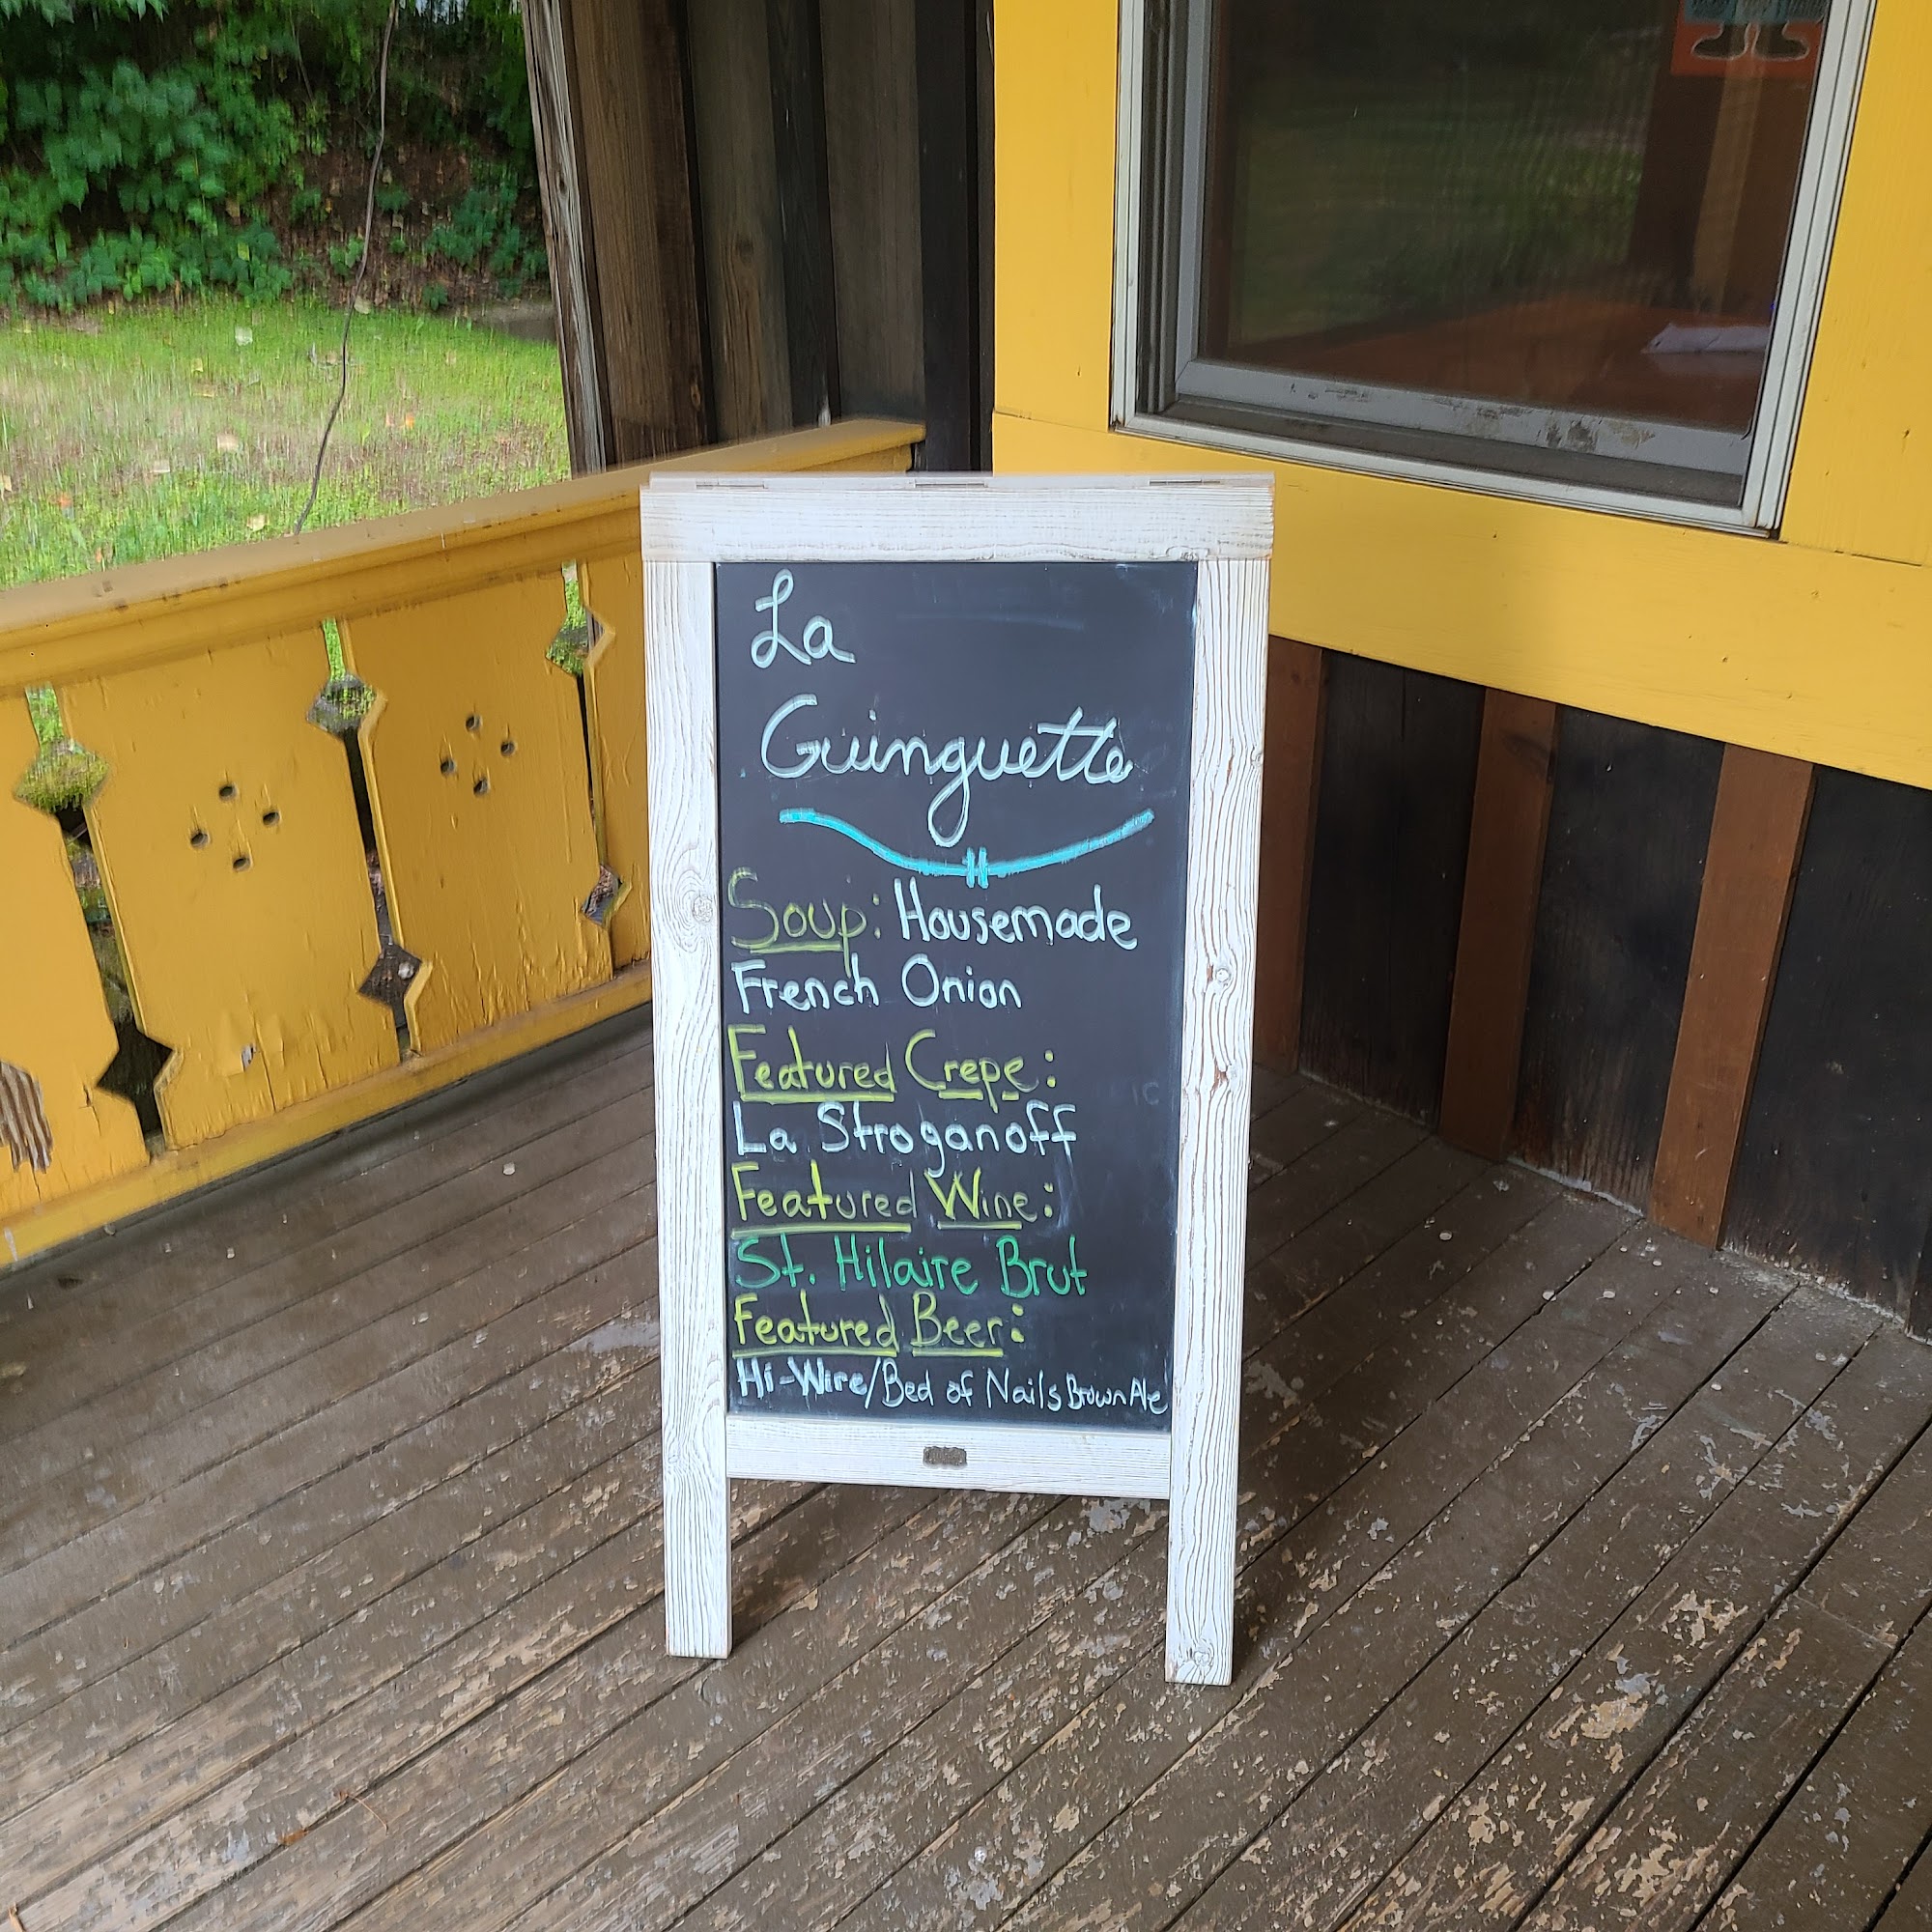 La
Guinguette
Soup: Housemade
French Onion
Featured Crepe:
La Stroganoff
Featured Wine:
St. Hilaire Brut
Featured Beer:
Hi-Wire/Bed of Nails Brown Ale